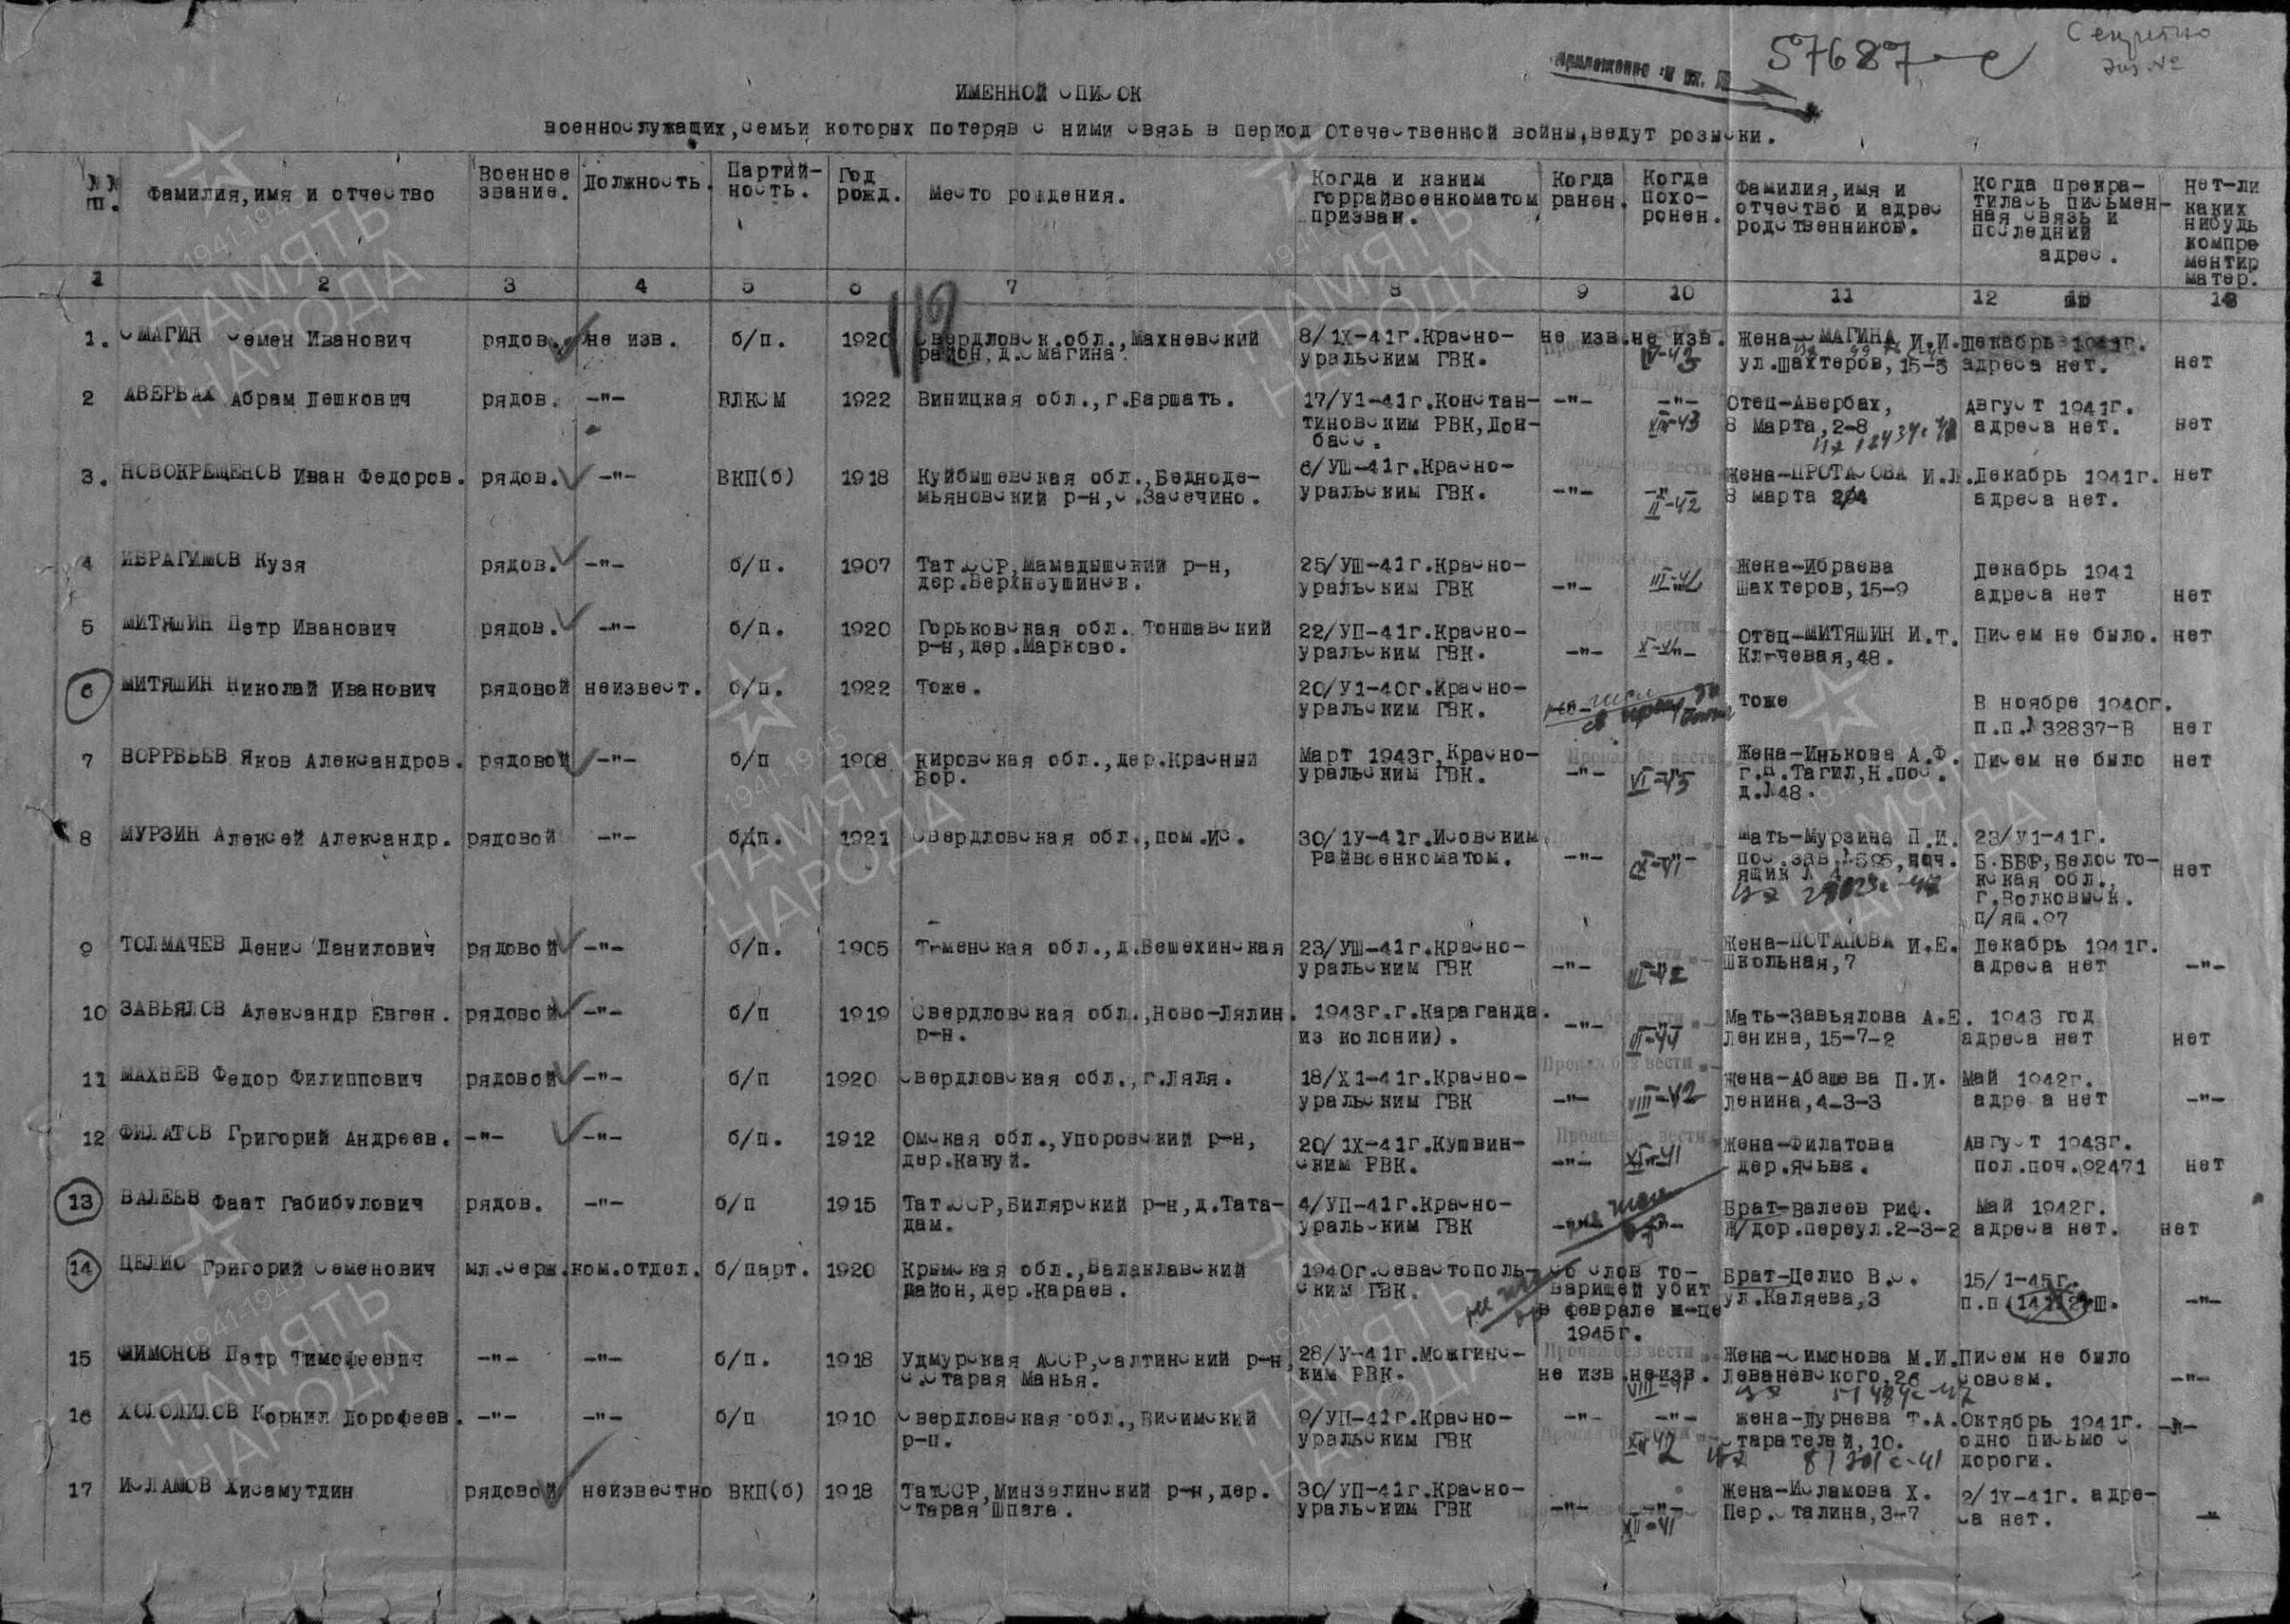 Секретно
экз. №
57687-с
Приложение
ИМЕННОЙ СПИСОК
военнослужащих, семьи которых потеряв с ними связь в период Отечественной войны, ведут розыски.
№№ пп. | Фамилия, имя и отчество | Военное звание. | Должность. | Партий-ность. | Год рожд. | Место рождения. | Когда и каким горрайвоенкоматом призван. | Когда ранен. | Когда похо-ронен. | Фамилия, имя и отчество и адрес родственников. | Когда прекра-тилась письмен-ная связь и последний адрес. | Нет-ли каких нибудь компре ментир матер.
1 2 3 4 5 6 7 8 9 10 11 12 13
1. СМАГИН Семен Иванович рядов. не изв. б/п. 1920 Свердловск.обл., Махневский 8/1Х-41г.Красно- не изв. не изв. Жена-СМАГИНА И.И. Декабрь 1941г.
район, д.Смагина. уральским ГВК. ул.Шахтеров, 15-5 адреса нет. нет
2 АВЕРБАХ Абрам Лешкович рядов. -"- ВЛКСМ 1922 Виницкая обл., г.Варшать. 17/У1-41г.Констан- -"- -"- Отец-Авербах, Август 1941г.
тиновским РВК, Дон- XII-43 8 Марта, 2-8 адреса нет. нет
басс.
3. НОВОКРЕЩЕНОВ Иван Федоров. рядов. -"- ВКП(б) 1918 Куйбышевская обл., Бедноде- 6/УШ-41г.Красно- Жена-ПРОТАСОВА И.Л. Декабрь 1941г. нет
мьяновский р-н, с.Засечино. уральским ГВК. -"- -"- 8 марта адреса нет.
II-42
4 ИБРАГИМОВ Кузя рядов. -"- б/п. 1907 Тат.ССР, Мамадышский р-н, 25/УШ-41г.Красно- Жена-Ибраева Декабрь 1941
дер.Верхнеушинск. уральским ГВК -"- III-42 Шахтеров, 15-9 адреса нет нет
5 МИТЯШИН Петр Иванович рядов. -"- б/п. 1920 Горьковская обл. Тоншавский 22/УП-41г.Красно- Отец-МИТЯШИН И.т. Писем не было. нет
р-н, дер.Марково. уральским ГВК. -"- Ключевая, 48.
6 МИТЯШИН Николай Иванович рядовой неизвест. б/п. 1922 Тоже. 20/У1-40г.Красно- тоже В ноябре 1940г.
уральским ГВК. п.п.№32837-В нет
7 ВОРРВЬЕВ Яков Александров. рядовой -"- б/п 1908 Кировская обл., дер.Красный Март 1943г.Красно- Жена-Инькова А.Ф. Писем не было нет
Бор. уральским ГВК. -"- VI-43 г.Н.Тагил, Н.пос.
д.№48.
8 МУРЗИН Алексей Александр. рядовой -"- б/п. 1921 Свердловская обл., пом.Ис. 30/1У-41г.Исовским Мать-Мурзива П.И. 23/У1-41г.
Райвоенкоматом. -"- IX-41 пос.зав.№595, поч. Б.БВР, Белосто-
ящик № 4 кская обл., нет
г.Волковыск.
п/ящ.97
9 ТОЛМАЧЕВ Денис Данилович рядовой -"- б/п. 1905 Тюменская обл., д.Вешехинская 23/УШ-41г.Красно- Жена-ПОТАПОВА И.Е. Декабрь 1941г.
уральским ГВК -"- III-42 Школьная, 7 адреса нет -"-
10 ЗАВЬЯЛОВ Александр Евген. рядовой -"- б/п 1919 Свердловская обл., Ново-Лялин. 1943г.г.Караганда. Мать-Завьялова А.Е. 1943 год
р-н. из колонии). -"- -"- III-44 Ленина, 15-7-2 адреса нет нет
11 МАХНЕВ Федор Филиппович рядовой -"- б/п 1920 Свердловская обл., г.Ляля. 18/Х1-41г.Красно- Пропал без вести Жена-Абашева П.И. Май 1942г.
уральским ГВК -"- VIII-42 Ленина, 4-3-3 адреса нет -"-
12 ФИЛАТОВ Григорий Андреев. -"- -"- б/п. 1912 Омская обл., Упоровский р-н, 20/1Х-41г.Кушвин- Пропал без вести Жена-Филатова Август 1943г.
дер.Какуй. ским РВК. -"- XI-41 дер.Ясьва. пол.поч.92471 нет
13 ВАЛЕЕВ Фаат Габибулович рядов. -"- б/п 1915 Тат.ССР, Билярский р-н, д.Тата- 4/УП-41г.Красно- Брат-Валеев Риф. Май 1942г.
дам. уральским ГВК -"- -"- Ж/дор.переул.2-3-2 адреса нет. нет
14 ЦЕЛИО Григорий Семенович мл.серж. ком.отдел. б/парт. 1920 Крымская обл., Балаклавский 1940г.Севастополь- Со слов то- Брат-Целио В.С. 15/1-45г.
район, дер.Караев. ским ГВК. варищей убит ул.Каляева, 3 п.п. -"-
в феврале м-це
1945г.
15 ШИМОНОВ Петр Тимофеевич -"- -"- б/п. 1918 Удмурская АССР, Салтинский р-н, 28/У-41г.Можгинс- Пропал без вести Жена-Симонова М.И. Писем не было
с.Старая Манья. ким РВК. не изв. неизв. Леваневского, 26 совсем. -"-
16 ХОЛОДИЛОВ Корнил Дорофеев. -"- -"- б/п 1910 Свердловская обл., Висимский 9/УП-41г.Красно- -"- -"- жена-Дурнева Т.А. Октябрь 1941г. -"-
р-п. уральским ГВК XII-42 Старателей, 10. одно письмо с
дороги.
17 ИСЛАМОВ Хисамутдин рядовой неизвестно ВКП(б) 1918 ТатССР, Минзелинский р-н, дер. 30/УП-41г.Красно- Жена-Исламова Х. 2/1Х-41г. адре-
Старая Шпага. уральским ГВК -"- -"- Пер.Сталина, 3-7 са нет. -"-
XII-41
1941-1945
ПАМЯТЬ
НАРОДА